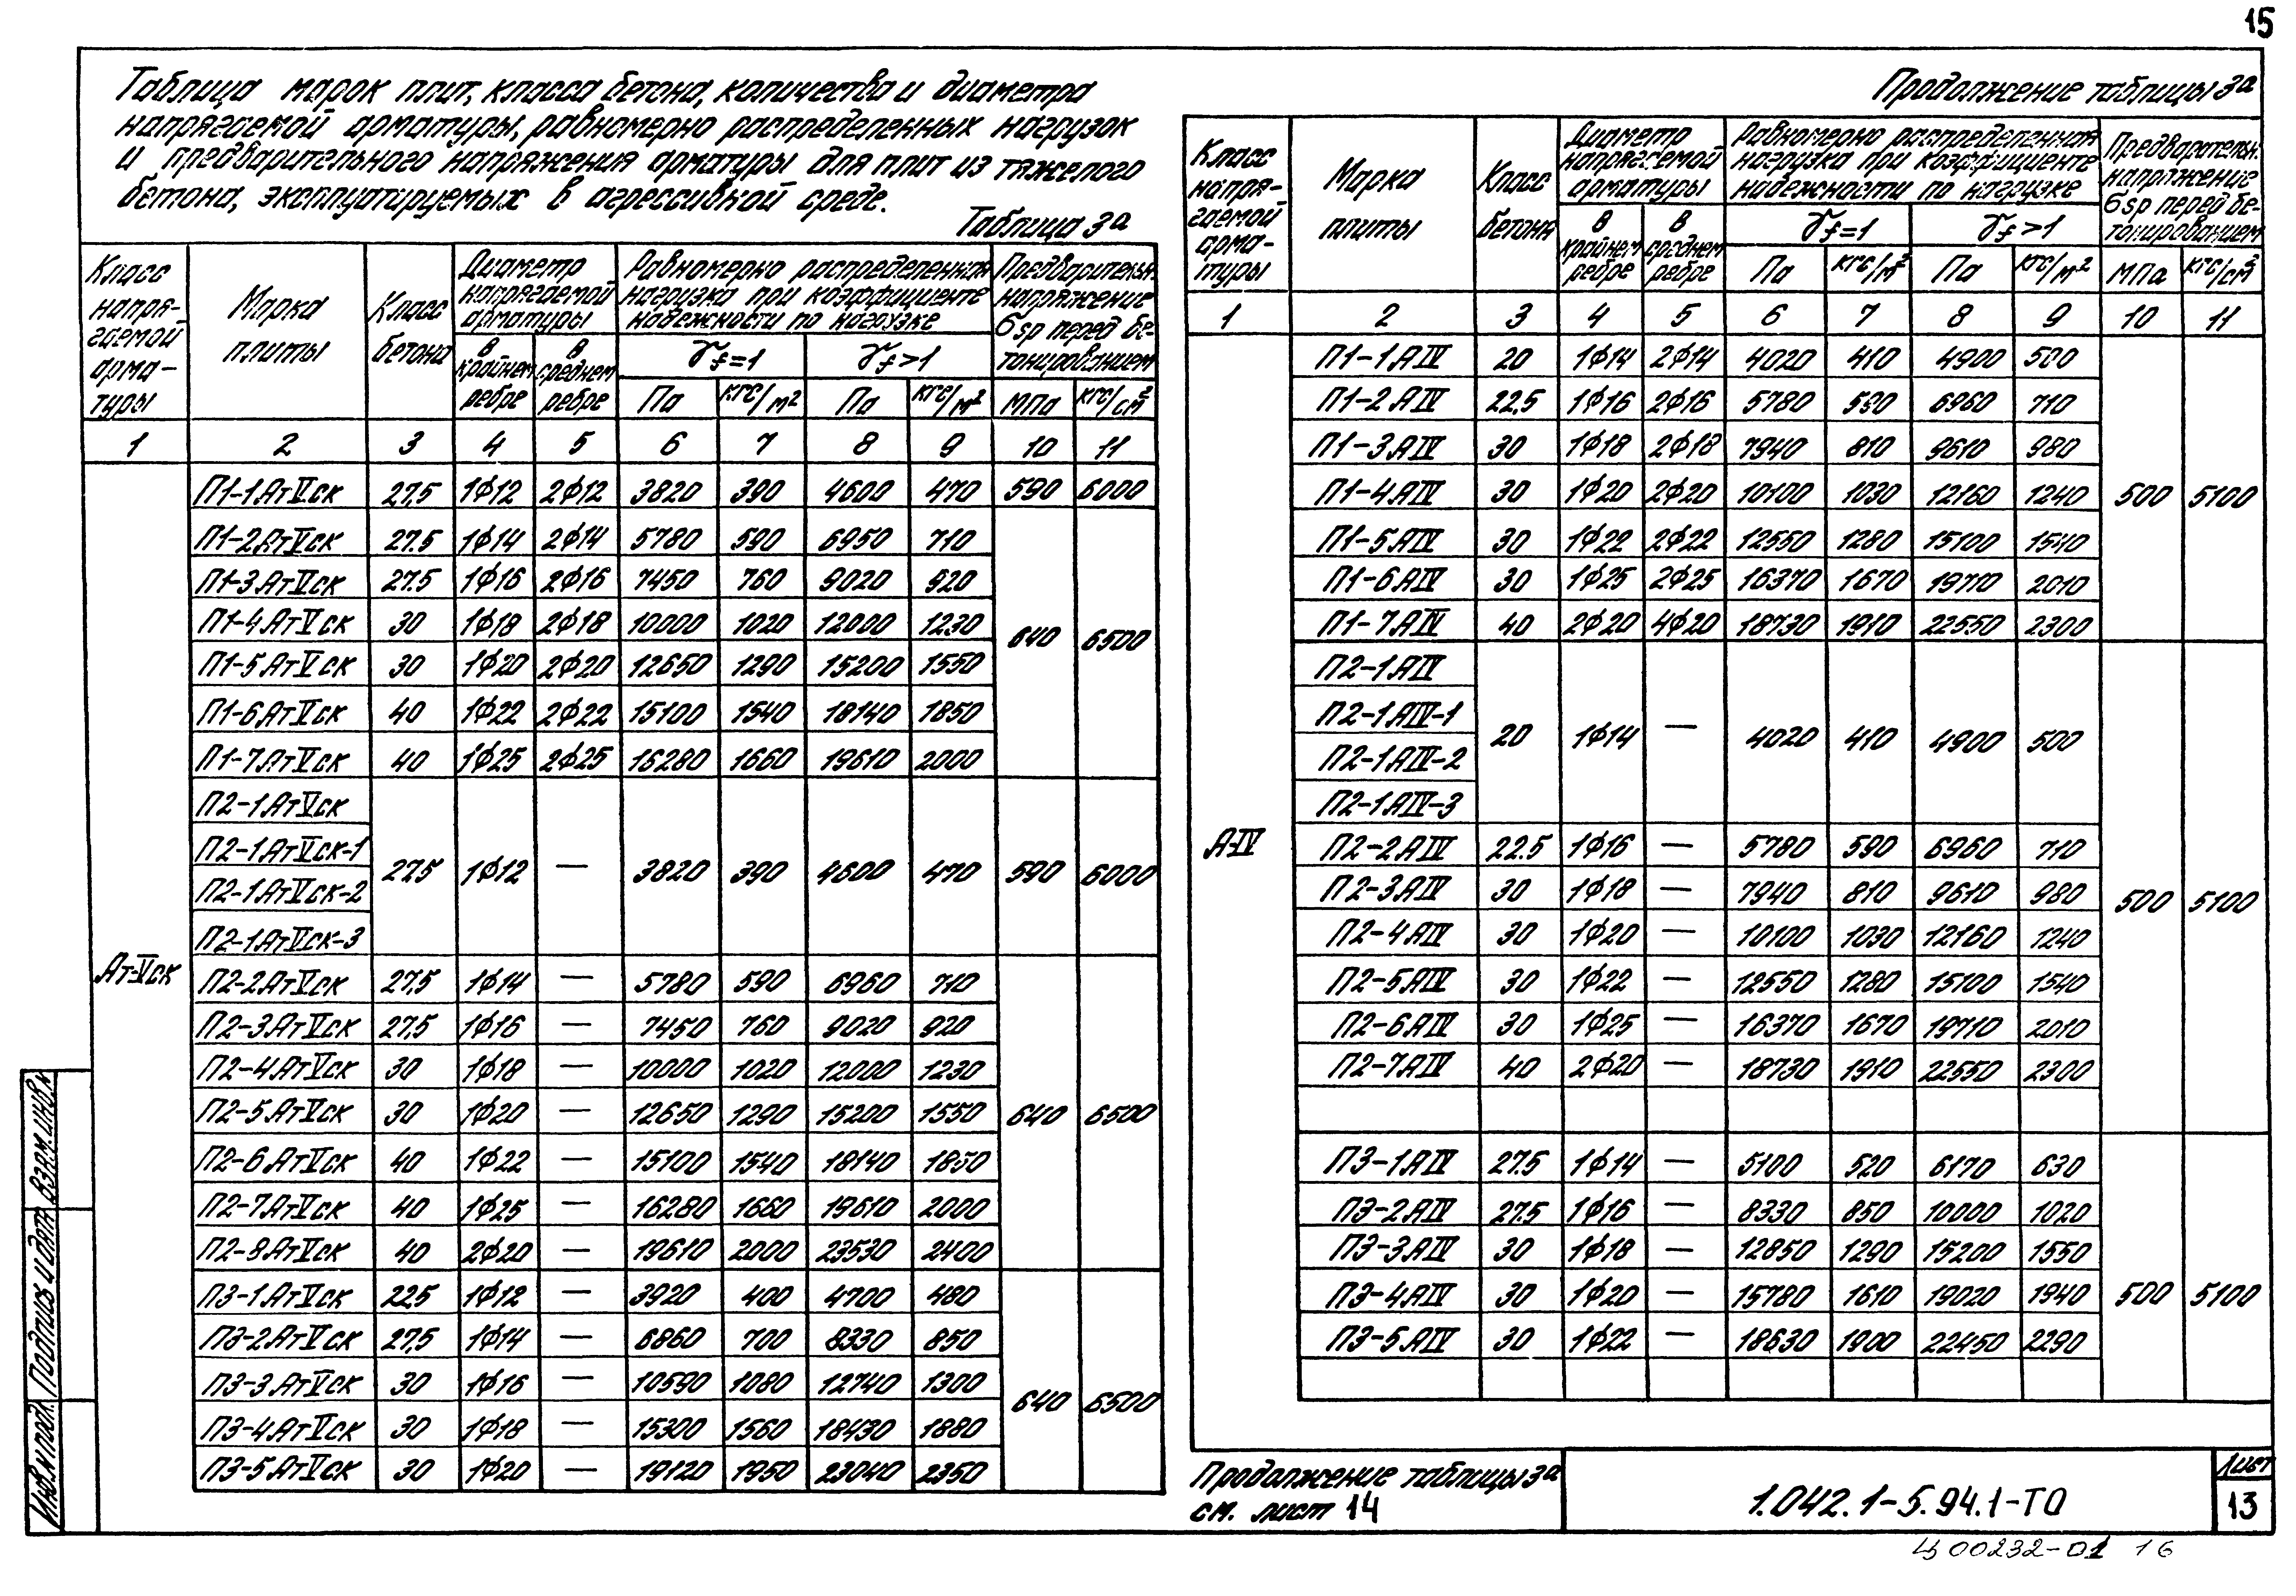 15
Таблица марок плит, класса бетона, количества и диаметра
напрягаемой арматуры, равномерно распределенных нагрузок
и предварительного напряжения арматуры для плит из тяжелого
бетона, эксплуатируемых в агрессивной среде.
Таблица 3а
Класс напря-гаемой арма-туры | Марка плиты | Класс бетона | Диаметр напрягаемой арматуры | Равномерно распределенная нагрузка при коэффициенте надежности по нагрузке | Предварительн. напряжение бsp перед бе-тонированием
в крайнем ребре | в среднем ребре | γf=1 | γf>1
Па | кгс/м² | Па | кгс/м² | МПа | кгс/см²
1 2 3 4 5 6 7 8 9 10 11
П1-1АтVск 27,5 1ϕ12 2ϕ12 3820 390 4600 470 590 6000
П1-2АтVск 27.5 1ϕ14 2ϕ14 5780 590 6950 710
П1-3АтVск 27.5 1ϕ16 2ϕ16 7450 760 9020 920
П1-4АтVск 30 1ϕ18 2ϕ18 10000 1020 12000 1230
640 6500
П1-5АтVск 30 1ϕ20 2ϕ20 12650 1290 15200 1550
П1-6АтVск 40 1ϕ22 2ϕ22 15100 1540 18140 1850
П1-7АтVск 40 1ϕ25 2ϕ25 16280 1660 19610 2000
П2-1АтVск
П2-1АтVск-1
27,5 1ϕ12 — 3820 390 4600 470 590 6000
П2-1АтVск-2
П2-1АтVск-3
Ат-Vск
П2-2АтVск 27,5 1ϕ14 — 5780 590 6960 710
П2-3АтVск 27,5 1ϕ16 — 7450 760 9020 920
П2-4АтVск 30 1ϕ18 — 10000 1020 12000 1230
П2-5АтVск 30 1ϕ20 — 12650 1290 15200 1550 640 6500
П2-6АтVск 40 1ϕ22 — 15100 1540 18140 1850
П2-7АтVск 40 1ϕ25 — 16280 1660 19610 2000
П2-8АтVск 40 2ϕ20 — 19610 2000 23530 2400
П3-1АтVск 22,5 1ϕ12 — 3920 400 4700 480
П3-2АтVск 27,5 1ϕ14 — 6860 700 8330 850
П3-3АтVск 30 1ϕ16 — 10590 1080 12740 1300
640 6500
П3-4АтVск 30 1ϕ18 — 15300 1560 18430 1880
П3-5АтVск 30 1ϕ20 — 19120 1950 23040 2350
Продолжение таблицы 3а
Класс напря-гаемой арма-туры | Марка плиты | Класс бетона | Диаметр напрягаемой арматуры | Равномерно распределенная нагрузка при коэффициенте надежности по нагрузке | Предварительн. напряжение бsp перед бе-тонированием
в крайнем ребре | в среднем ребре | γf=1 | γf>1
Па | кгс/м² | Па | кгс/м² | МПа | кгс/см²
1 2 3 4 5 6 7 8 9 10 11
П1-1АIV 20 1ϕ14 2ϕ14 4020 410 4900 500
П1-2АIV 22,5 1ϕ16 2ϕ16 5780 590 6960 710
П1-3АIV 30 1ϕ18 2ϕ18 7940 810 9610 980
П1-4АIV 30 1ϕ20 2ϕ20 10100 1030 12160 1240 500 5100
П1-5АIV 30 1ϕ22 2ϕ22 12550 1280 15100 1540
П1-6АIV 30 1ϕ25 2ϕ25 16370 1670 19710 2010
П1-7АIV 40 2ϕ20 4ϕ20 18730 1910 22550 2300
П2-1АIV
П2-1АIV-1
20 1ϕ14 — 4020 410 4900 500
П2-1АIV-2
П2-1АIV-3
А-IV
П2-2АIV 22.5 1ϕ16 — 5780 590 6960 710
П2-3АIV 30 1ϕ18 — 7940 810 9610 980
500 5100
П2-4АIV 30 1ϕ20 — 10100 1030 12160 1240
П2-5АIV 30 1ϕ22 — 12550 1280 15100 1540
П2-6АIV 30 1ϕ25 — 16370 1670 19710 2010
П2-7АIV 40 2ϕ20 — 18730 1910 22550 2300
П3-1АIV 27.5 1ϕ14 — 5100 520 6170 630
П3-2АIV 27.5 1ϕ16 — 8330 850 10000 1020
П3-3АIV 30 1ϕ18 — 12850 1290 15200 1550
П3-4АIV 30 1ϕ20 — 15780 1610 19020 1940 500 5100
П3-5АIV 30 1ϕ22 — 18630 1900 22450 2290
Продолжение таблицы 3а
см. лист 14
1.042.1-5.94.1-ТО
Лист
13
Ц00232-01 16
Взам.инв.н
Подпись и дата
Инв.н подл.